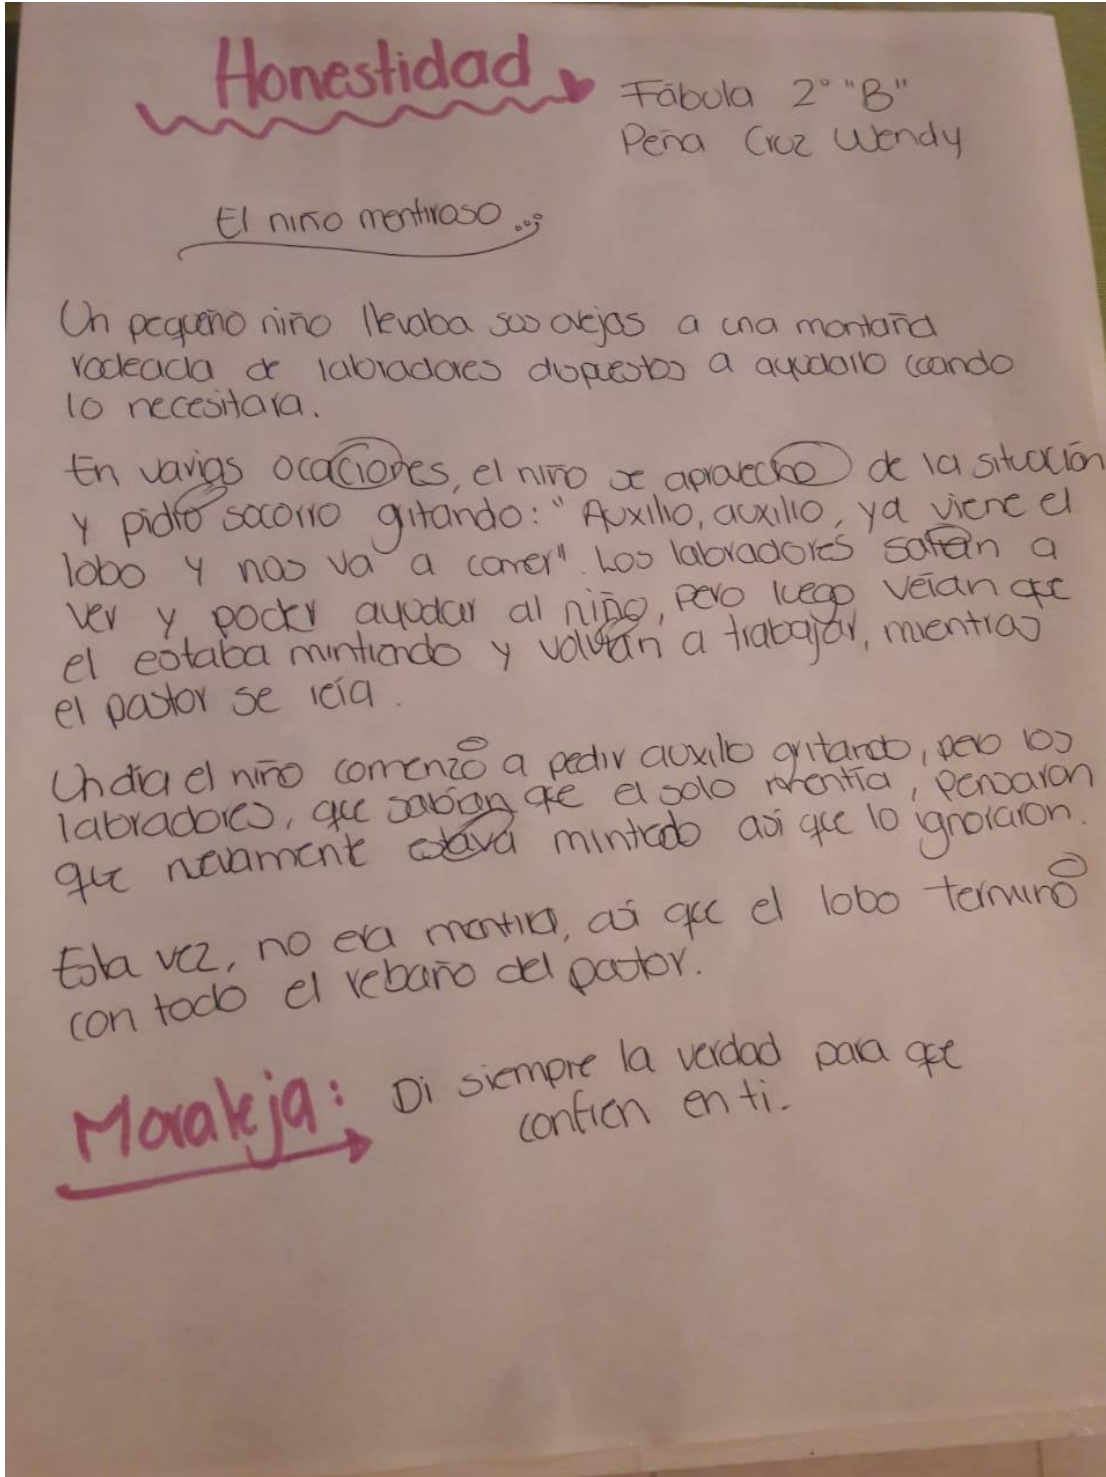 Honestidad
Fábula 2° "B"
Peña Cruz Wendy
El niño mentiroso
Un pequeño niño llevaba sus ovejas a una montaña
rodeada de labradores dispuestos a ayudarlo cuando
lo necesitara.
En varias ocaciones, el niño se aprovecho de la situación
y pidio socorro gritando: "Auxilio, auxilio, ya viene el
lobo y nos va a comer". Los labradores salian a
ver y poder ayudar al niño, pero luego veían que
el estaba mintiendo y volvian a trabajar, mientras
el pastor se reía.
Un día el niño comenzo a pedir auxilio gritando, pero los
labradores, que sabían que el solo mentía, pensaron
que nuevamente estava mintiedo asi que lo ignoraron.
Esta vez, no era mentira, asi que el lobo termino
con todo el rebaño del pastor.
Moraleja: Di siempre la verdad para que
confien en ti.